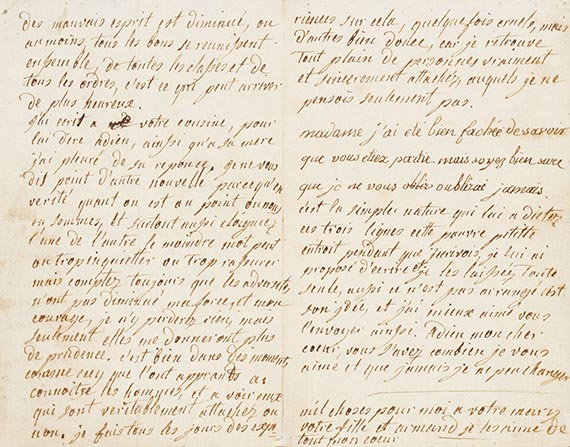 des mauvais esprit est diminué, ou
au moins, tous les bons se reunissent
ensemble, de toutes les classes et de
tous les ordres, c'est ce qui peut arriver
de plus heureux.
j'ai ecrit a votre cousine, pour
lui dire adieu, ainsi qu'a sa mere
j'ai pleuré de sa reponce, je ne vous
dit point d'autre nouvelle parcequ'en
verité quant on est au point ou nous
en sommes, et surtout aussi eloignez
l'une de l'autre le moindre mot peut
ou trop inquietter ou trop rassurer
mais comptez toujours que les adversités
n'ont pas diminué ma force, et mon
courage, je n'y perderez rien, mais
seulement elles me donneront plus
de prudence. c'est bien dans des moments
comme cecy que l'ont apprands a
connoitre les hommes, et a voir ceux
qui sont veritablement attachez ou
non. je fais tous les jours des expe
riences sur cela, quelquefois cruels, mais
d'autres bien douce, car je retrouve
tout plain de personnes vraiment
et sincerement attachez, auquels je ne
pensois seulement pas.
madame j'ai eté bien fachée de savoir
que vous etiez partie. mais soyez bien sure
que je ne vous oublirai jamais
c'est la simple nature qui lui a dictez
ces trois lignes cette pauvre petitte
entroit pendant que j'ecrivois, je lui ai
proposé d'ecrire et je les laissez toute
seule, aussi ce n'est pas arrangé c'est
son idée, et j'ai mieux aimé vous
l'envoyer ainsi. Adieu mon cher
coeur, vous savez combien je vous
aime et que jamais je ne peu changer
mil choses pour moi a votre mere
votre fille et armand je les aime de
tout mon coeur